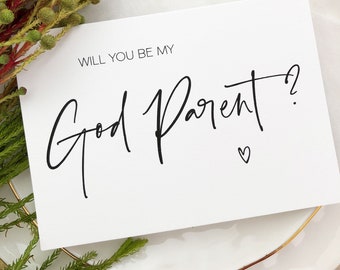 WILL YOU BE MY
God Parent?